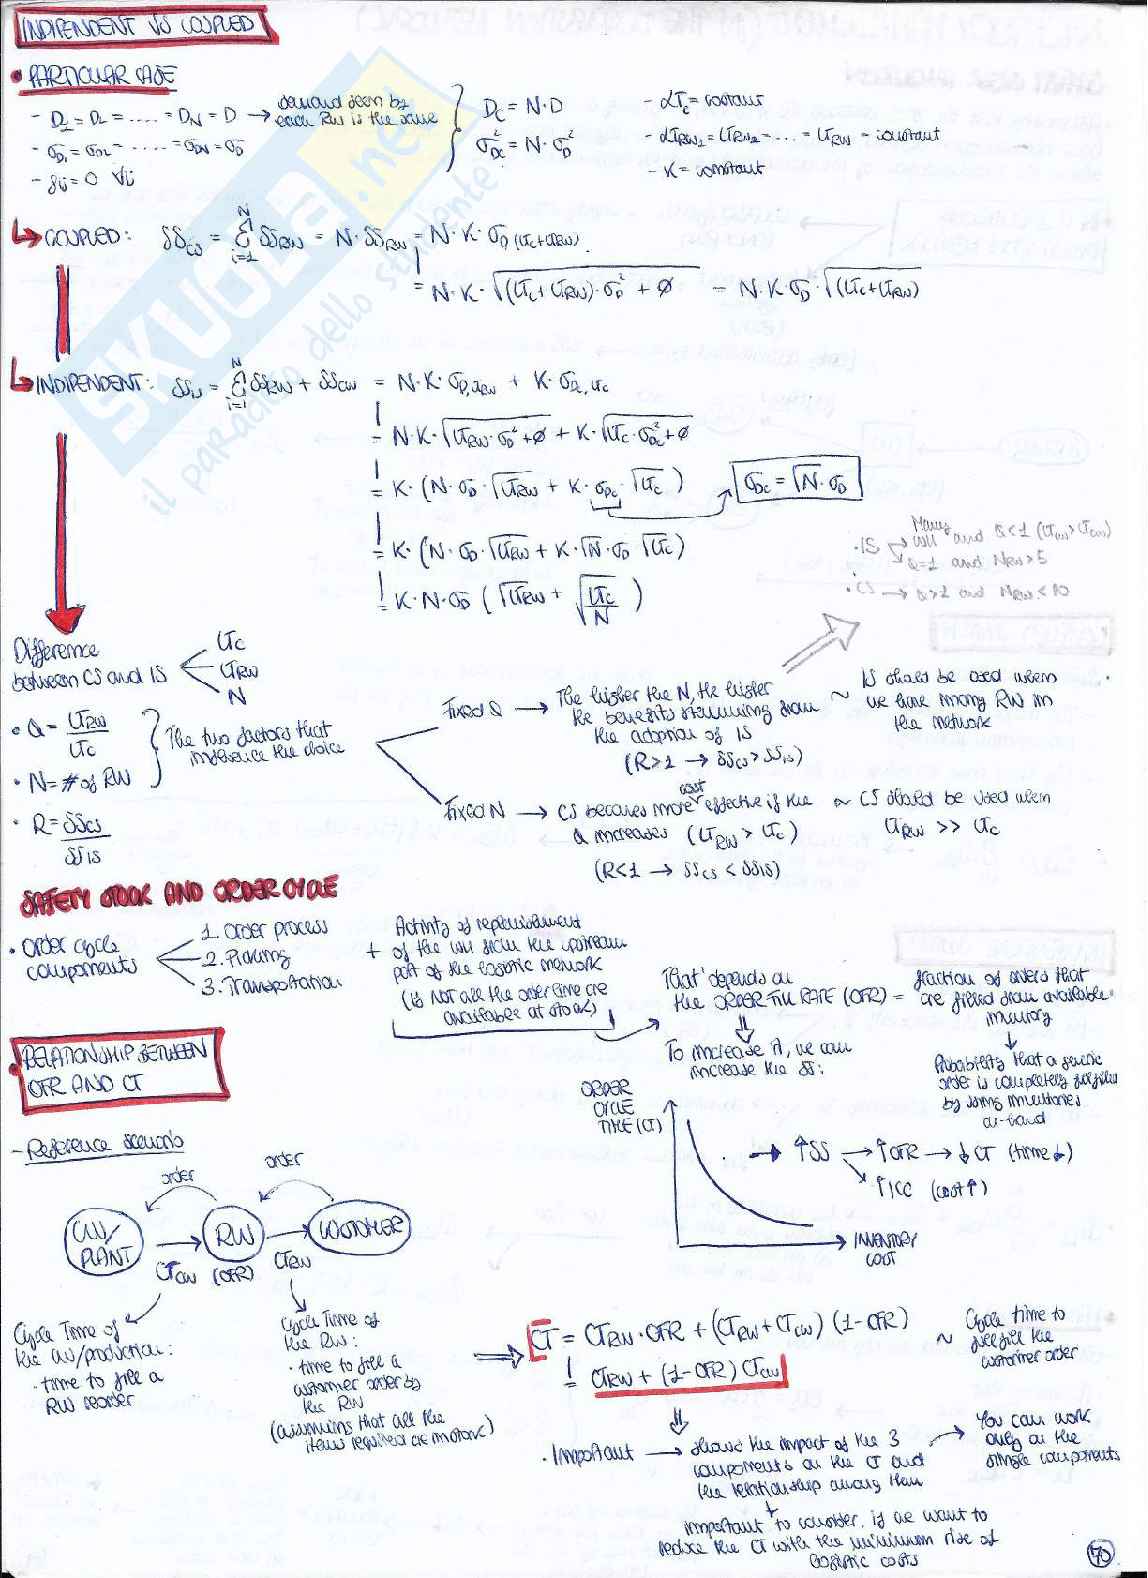 INDIPENDENT VS COUPLED
• PARTICULAR CASE
- D1 = D2 = ..... = DN = D → demand seen by each RW is the same
- σD1 = σD2 = ..... = σDN = σD
- ρij = 0 ∀ij
DC = N·D
σ²DC = N·σ²D
- LTC = constant
- LTRW1 = LTRW2 = .... = LTRW = constant
- K = constant
SKUOLA.net
il paradiso dello studente
↳ COUPLED: SSCS = Σ(i=1..N) SSRW = N·SSRW = N·K·σD(LTC+LTRW)
= N·K·√((LTC+LTRW)·σ²D + ∅) = N·K·σD·√(LTC+LTRW)
↳ INDIPENDENT: SSIS = Σ(i=1..N) SSRW + SSCW = N·K·σD,LTRW + K·σDC,LTC
= N·K·√(LTRW·σ²D+∅) + K·√(LTC·σ²DC+∅)
= K·(N·σD·√LTRW + K·σDC·√LTC) → σDC = √N·σD
= K·(N·σD·√LTRW + K·√N·σD √LTC)
= K·N·σD (√LTRW + √(LTC/N))
• IS → Many RW and Q<1 (LTCW>LTRW)
→ Q=1 and NRW>5
• CS → Q>1 and NRW<10
Difference
between CS and IS
LTC
LTRW
N
• Q = LTRW / LTC
• N = # of RW
The two factors that
influence the choice
• R = SSCS / SSIS
Fixed Q → The higher the N, the higher
the benefits stemming from
the adoption of IS
(R>1 → SSCS>SSIS)
~ IS should be used when
we have many RW in
the network
Fixed N → CS becomes more cost effective if the
Q increases (LTRW > LTC)
(R<1 → SSCS < SSIS)
~ CS should be used when
LTRW >> LTC
SAFETY STOCK AND ORDER CYCLE
• Order cycle
components
1. Order process
2. Picking
3. Transportation
+ Activity of replenishment
of the RW from the upstream
part of the logistic network
(is NOT all the order line are
available at stock)
That depends on
the ORDER FILL RATE (OFR) = fraction of orders that
are filled from available
inventory
To increase it, we can
increase the SS:
Probability that a generic
order is completely fulfilled
by using inventories
on-hand
RELATIONSHIP BETWEEN
OFR AND CT
ORDER
CYCLE
TIME (CT)
INVENTORY
COST
→ ↑SS → ↑OFR → ↓CT (time ↓)
↑ICC (cost ↑)
- Reference scenario
order
order
CW/
PLANT
RW
CUSTOMER
CTCW
(OFR)
CTRW
Cycle Time of
the CW/production:
• time to fill a
RW reorder
Cycle Time of
the RW:
• time to fill a
customer order by
the RW
(assuming that all the
items required are in stock)
⇒ CT = CTRW·OFR + (CTRW+CTCW)(1-OFR)
= CTRW + (1-OFR) CTCW
~ Cycle time to
fulfill the
customer order
• Important → shows the impact of the 3
components on the CT and
the relationship among them
You can work
only on the
single components
+
important to consider if we want to
reduce the CT with the minimum rise of
logistic costs
70